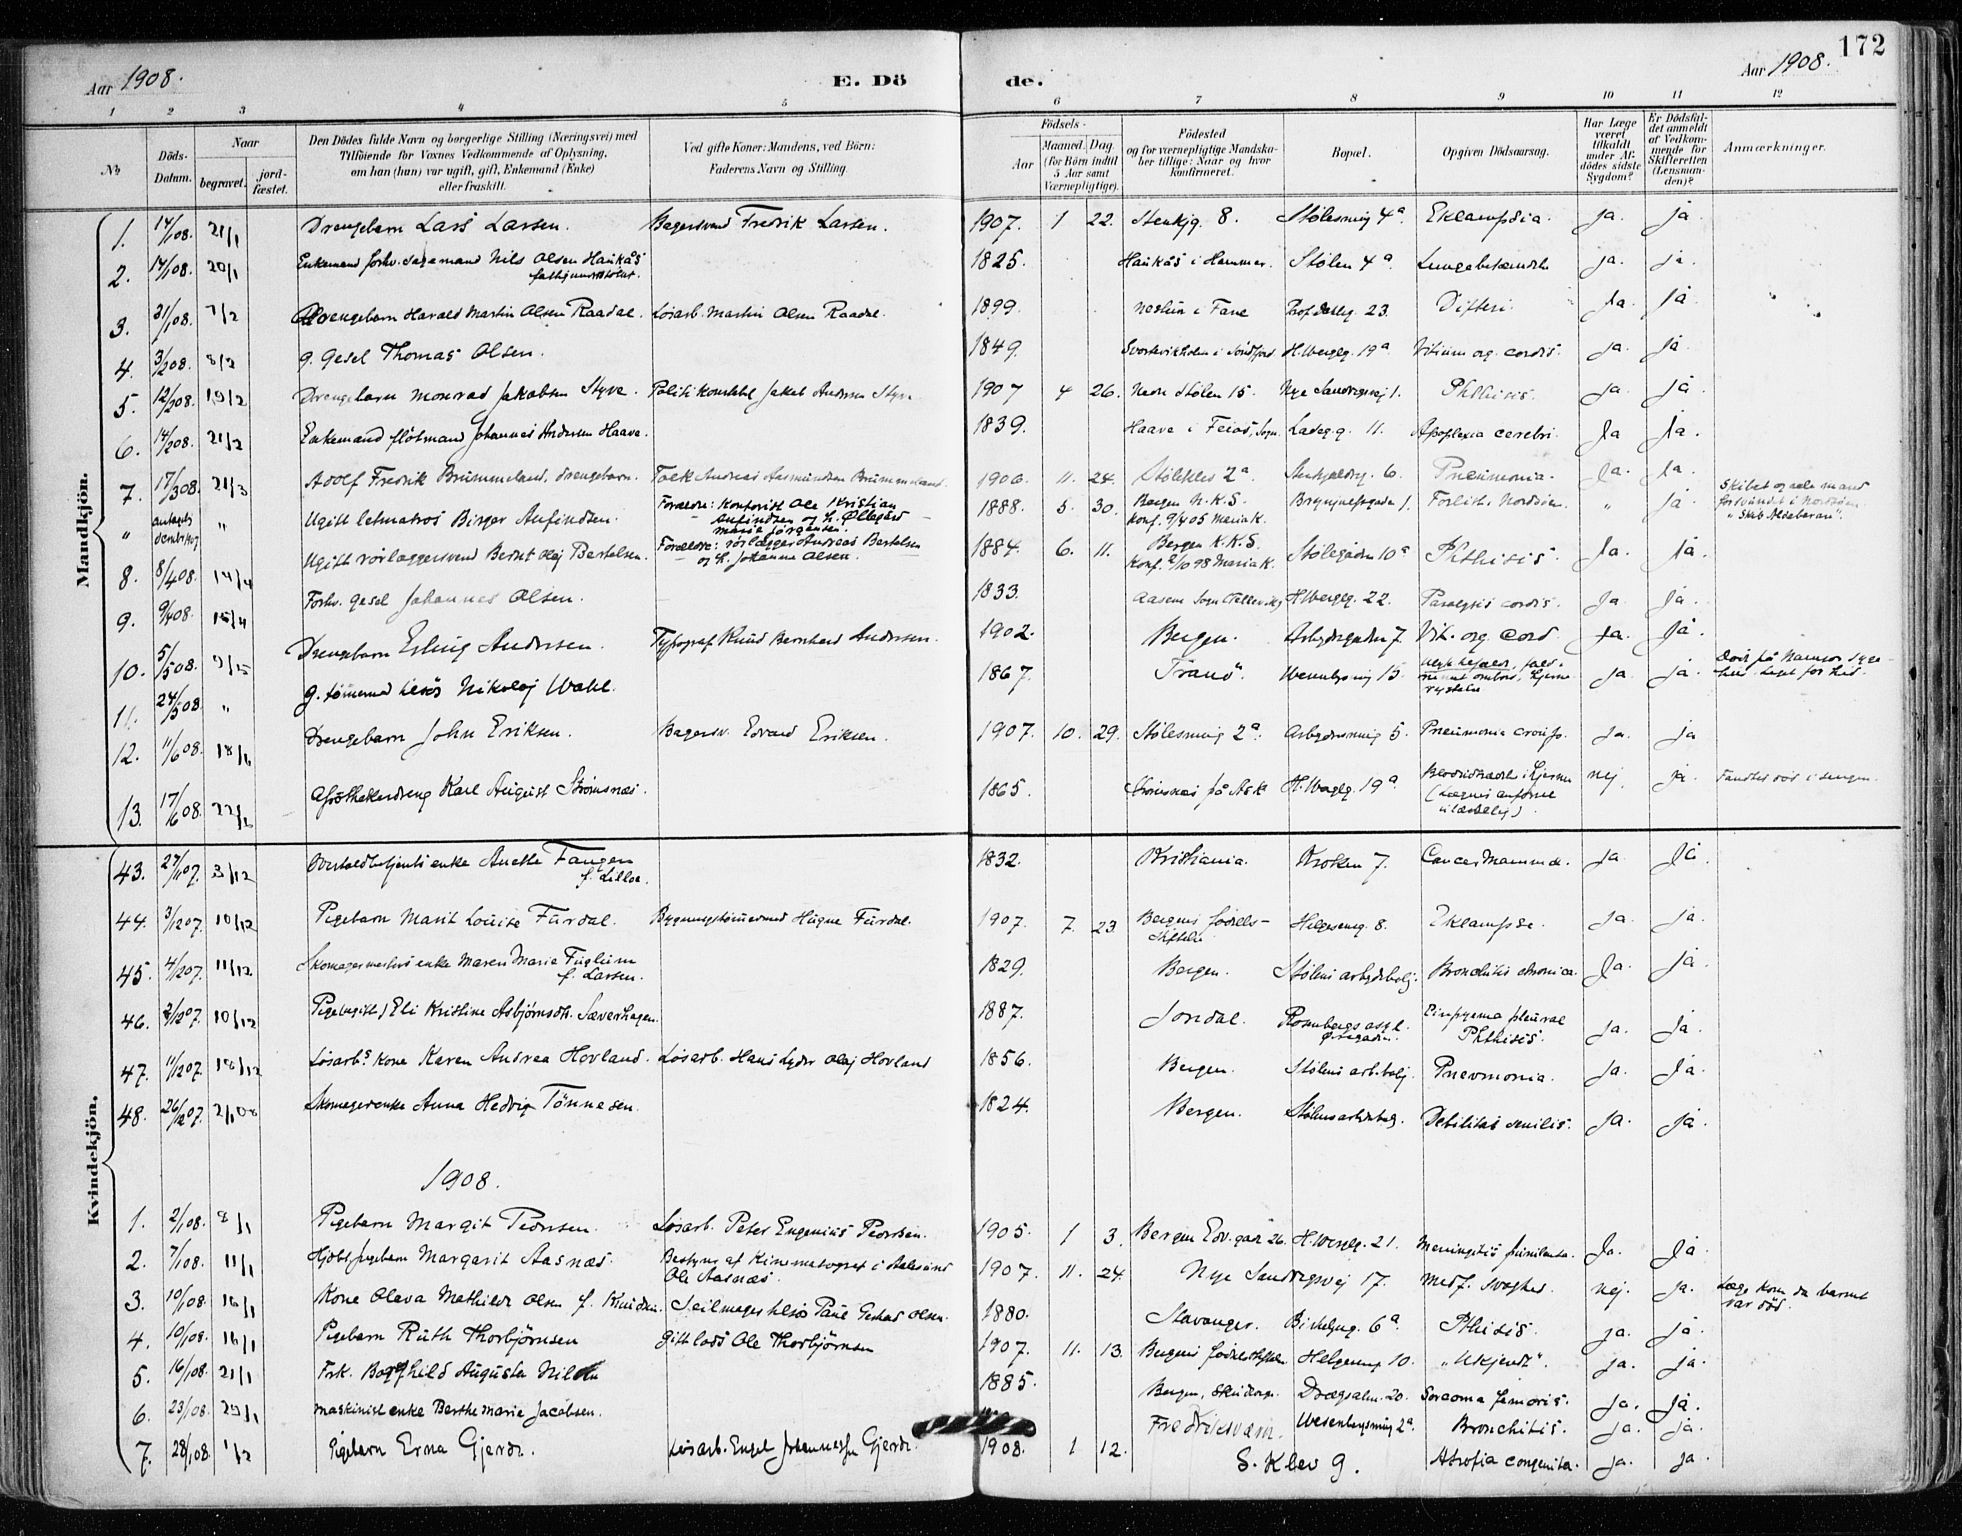 172
Aar 1908.
E. Dö
de.
Aar 1908.
1 2 3 4 5 6 7 8 9 10 11 12
No
Döds-Datum.
Naar
begravet.
jord-fæstet.
Den Dödes fulde Navn og borgerlige Stilling (Næringsvei) med
Tilföiende for Voxnes Vedkommende af Oplysning,
om han (hun) var ugift, gift, Enkemand (Enke)
eller fraskilt.
Ved gifte Koner: Mandens, ved Börn:
Faderens Navn og Stilling.
Födsels-
Aar
Maaned. Dag.
(for Börn indtil
5 Aar samt
Værnepligtige).
Födested
og for værnepligtige Mandska-
ber tillige: Naar og hvor
konfirmeret.
Bopæl.
Opgiven Dödsaarsag.
Har Læge
været
tilkaldt
under Af-
dödes sidste
Sygdom?
Er Dödsfal-
det anmeldt
af Vedkom-
mende for
Skifteretten
(Lensman-
den)?
Anmærkninger.
Mandkjön.
1. 14/1 08. 21/1 Drengebarn Lars Larsen. Bagersvend Fredrik Larsen. 1907. 1 22. Stenkjg. 8. Stølesmug 4a. Eklampsia. ja. ja
2. 14/1 08. 20/1 Enkemand forhv. Nils Olsen Haukås 1825. Haukås i Hammer. Stølen 4a. ja. ja.
3. 31/1 08. 7/2 Drengebarn Harald Martin Olsen Raadal. Løsarb. Martin Olsen Raadal. 1899 Nestun i Fane 23. Difteri. Ja. ja
4. 3/2 08. 8/2 g. Gesel Thomas Olsen. 1849. H. Wergelg. 19a Vitium org. cordis. ja. ja
5. 12/2 08. 19/2 Drengebarn Monrad Jakobsen Styve. Politikonstabl Jakob Andersen Styve 1907 4 26. Nedre Stølen 15. Nye Sandvigsvej 1. Phthisis. ja. ja
6. 14/2 08. 21/2 Enkemand Johannes Andersen Haave. 1839. Haave i Feios, Sogn. Ladeg.g. 11. Apoplexia cerebri. Ja Ja.
7. 17/3 08. 21/3 Adolf Fredrik Brummeland, drengebarn. Andreas Aasmundsen Brummeland. 1906 11. 24. 2a 6. Pneumonia. Ja. Ja.
" antagelig " Ugift letmatros Birger Anfindsen. Forældre: Kontorist Ole Kristian
Anfindsen og h. Øllegård
Marie Jørgensen. 1888. 5. 30. Bergen N.K.S.
Konf. 9/4 05 Maria K. 1. Forlist i Nordsjøen " ja. Skibet og alle mand
forsvundet i Nordsjøen
"Skib Aldebaran".
8. 8/4 08. 14/4 Ugift rørlæggersvend Bernt Olaj Bertelsen. Forældre: rørlægger Andreas Bertelsen
og h. Johanne Olsen. 1884. 6. 11. Bergen K.K.S.
Konf. 2/10 98 Maria K. Stølegaden 10a Phthisis. Ja. ja.
9. 9/4 08. 15/4 Forhv. gesel Johannes Olsen. 1833. H. Wergelg. 22. Paralysis cordis. Ja ja.
10. 5/5 08. 9/5 Drengebarn Erling Andersen. Typograf Knud Bernhard Andersen. 1902. Bergen. 7. Vit. org. cord. Ja. Ja
11. 24/5 08. " g. Nikolaj Wahl. 1867. Tranö 15. ja ja.
12. 11/6 08. 18/6 Drengebarn John Eriksen. Bagersv. Edvard Eriksen. 1907. 10. 29. Stølesmug 2a. 5. Pneumonia croup. ja. ja
13. 17/6 08. 22/6 Apothekerdreng Karl August Strømsnæs. 1865. Strømsnæs på Ask H. Wergelg. 19a nej ja. Fandtes død i sengen.
Kvindekjön.
43. 27/11 07. 3/12 enke Anethe Fangen
f. Lilloe. 1832. Kristiania. Kroken 7. Cancer Mammae. ja Ja
44. 3/12 07. 10/12 Pigebarn Marit Louise Furdal. Hugne Furdal. 1907. 7. 23 Bergens fødsels-
stiftelse Helgesensg. 8. Eklampse. ja. ja.
45. 4/12 07. 11/12 Skomagermesters enke Maren Marie Fuglum
f. Larsen. 1829. Bergen. Stølens arbejderbolj. Bronchitis chronica. Ja. ja
46. 3/12 07. 10/12 Pige (ugift) Eli Kristine Asbjørnsdtr. Sæverhagen. 1887. Jondal. Rosenbergs asyl Empyema pleurae
Phthisis. ja. ja.
47. 11/12 07. 18/12 Løsarbs. kone Karen Andrea Hovland. Løsarb. Hans Lyder Olaj Hovland 1856. Bergen. Stølens arb.bolj. Pnevmonia. ja. ja.
48. 26/12 07. 2/1 08 Skomagerenke Anna Hedvig Tönnesen. 1824. Bergen. Stølens arbejderbolg. Debilitas senilis. ja. ja
1908.
1. 2/1 08. 8/1 Pigebarn Margit Pedersen. Løsarb. Peter Eugenius Pedersen. 1905. 1 3. Bergen 26. H. Wergelg. 21. Meningitis purulenta. Ja. Ja
2. 7/1 08. 11/1 Margarit Aasnæs. Bestyrer af Kinematograf i Aalesund
Ole Aasnæs. 1907. 11. 24. Nye Sandvigsvej 17. Medf. svaghed. nej. ja. Læge kom da barnet
var död.
3. 10/1 08. 16/1 Kone Olava Mathilde Olsen f. Knudsen. Seilmager Paul Olsen. 1880. Stavanger. 6a Phthisis. ja. ja
4. 10/1 08. 16/1 Pigebarn Ruth Thorbjörnsen Gift lods Ole Thorbjörnsen 1907. 11. 13. Bergens fødselsstiftelse Helgesensg. 10. "Ukjendt". ja. ja.
5. 16/1 08. 21/1 Frk. Borghild Augusta Nilsen 1885. Bergen, Drægsalm. 20. Sarcoma femoris. ja. ja.
6. 23/1 08. 29/1 Maskinist enke Berthe Marie Jacobsen. Fredriksværn. 2a Bronchitis. ja. ja.
7. 28/1 08. 1/2 Pigebarn Erna Gjerde. Løsarb. Engel Johannessen Gjerde. 1908. 1 12. S. Klev 9. Atrofia congenita. ja. ja